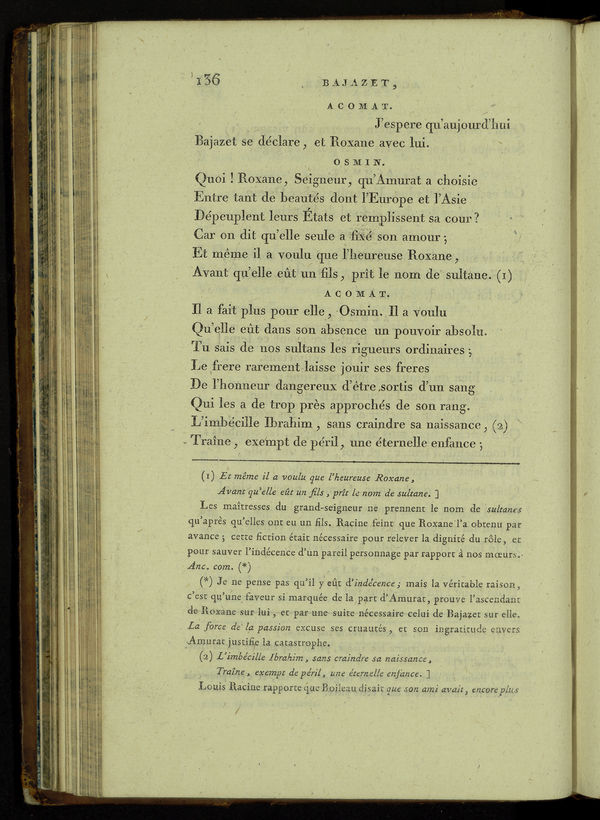 136 BAJAZET,
ACOMAT.
J'espere qu'aujourd'hui
Bajazet se déclare, et Roxane avec lui.
OSMIN.
Quoi ! Roxane, Seigneur, qu'Amurat a choisie
Entre tant de beautés dont l'Europe et l'Asie
Dépeuplent leurs États et remplissent sa cour ?
Car on dit qu'elle seule a fixé son amour ;
Et même il a voulu que l'heureuse Roxane,
Avant qu'elle eût un fils, prît le nom de sultane. (1)
ACOMAT.
Il a fait plus pour elle, Osmin. Il a voulu
Qu'elle eût dans son absence un pouvoir absolu.
Tu sais de nos sultans les rigueurs ordinaires ;
Le frere rarement laisse jouir ses freres
De l'honneur dangereux d'être sortis d'un sang
Qui les a de trop près approchés de son rang.
L'imbécille Ibrahim, sans craindre sa naissance, (2)
Traîne, exempt de péril, une éternelle enfance ;
(1) Et même il a voulu que l'heureuse Roxane,
Avant qu'elle eût un fils, prît le nom de sultane. ]
Les maîtresses du grand-seigneur ne prennent le nom de sultanes
qu'après qu'elles ont eu un fils. Racine feint que Roxane l'a obtenu par
avance ; cette fiction était nécessaire pour relever la dignité du rôle, et
pour sauver l'indécence d'un pareil personnage par rapport à nos mœurs.
Anc. com. (*)
(*) Je ne pense pas qu'il y eût d'indécence ; mais la véritable raison,
c'est qu'une faveur si marquée de la part d'Amurat, prouve l'ascendant
de Roxane sur lui, et par une suite nécessaire celui de Bajazet sur elle.
La force de la passion excuse ses cruautés, et son ingratitude envers
Amurat justifie la catastrophe.
(2) L'imbécille Ibrahim, sans craindre sa naissance,
Traîne, exempt de péril, une éternelle enfance. ]
Louis Racine rapporte que Boileau disait que son ami avait, encore plus